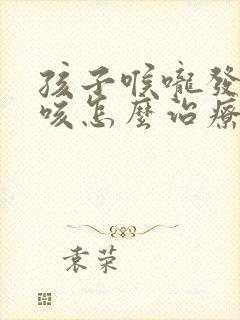 孩子喉嚨發
咳怎麼治療
袁荣